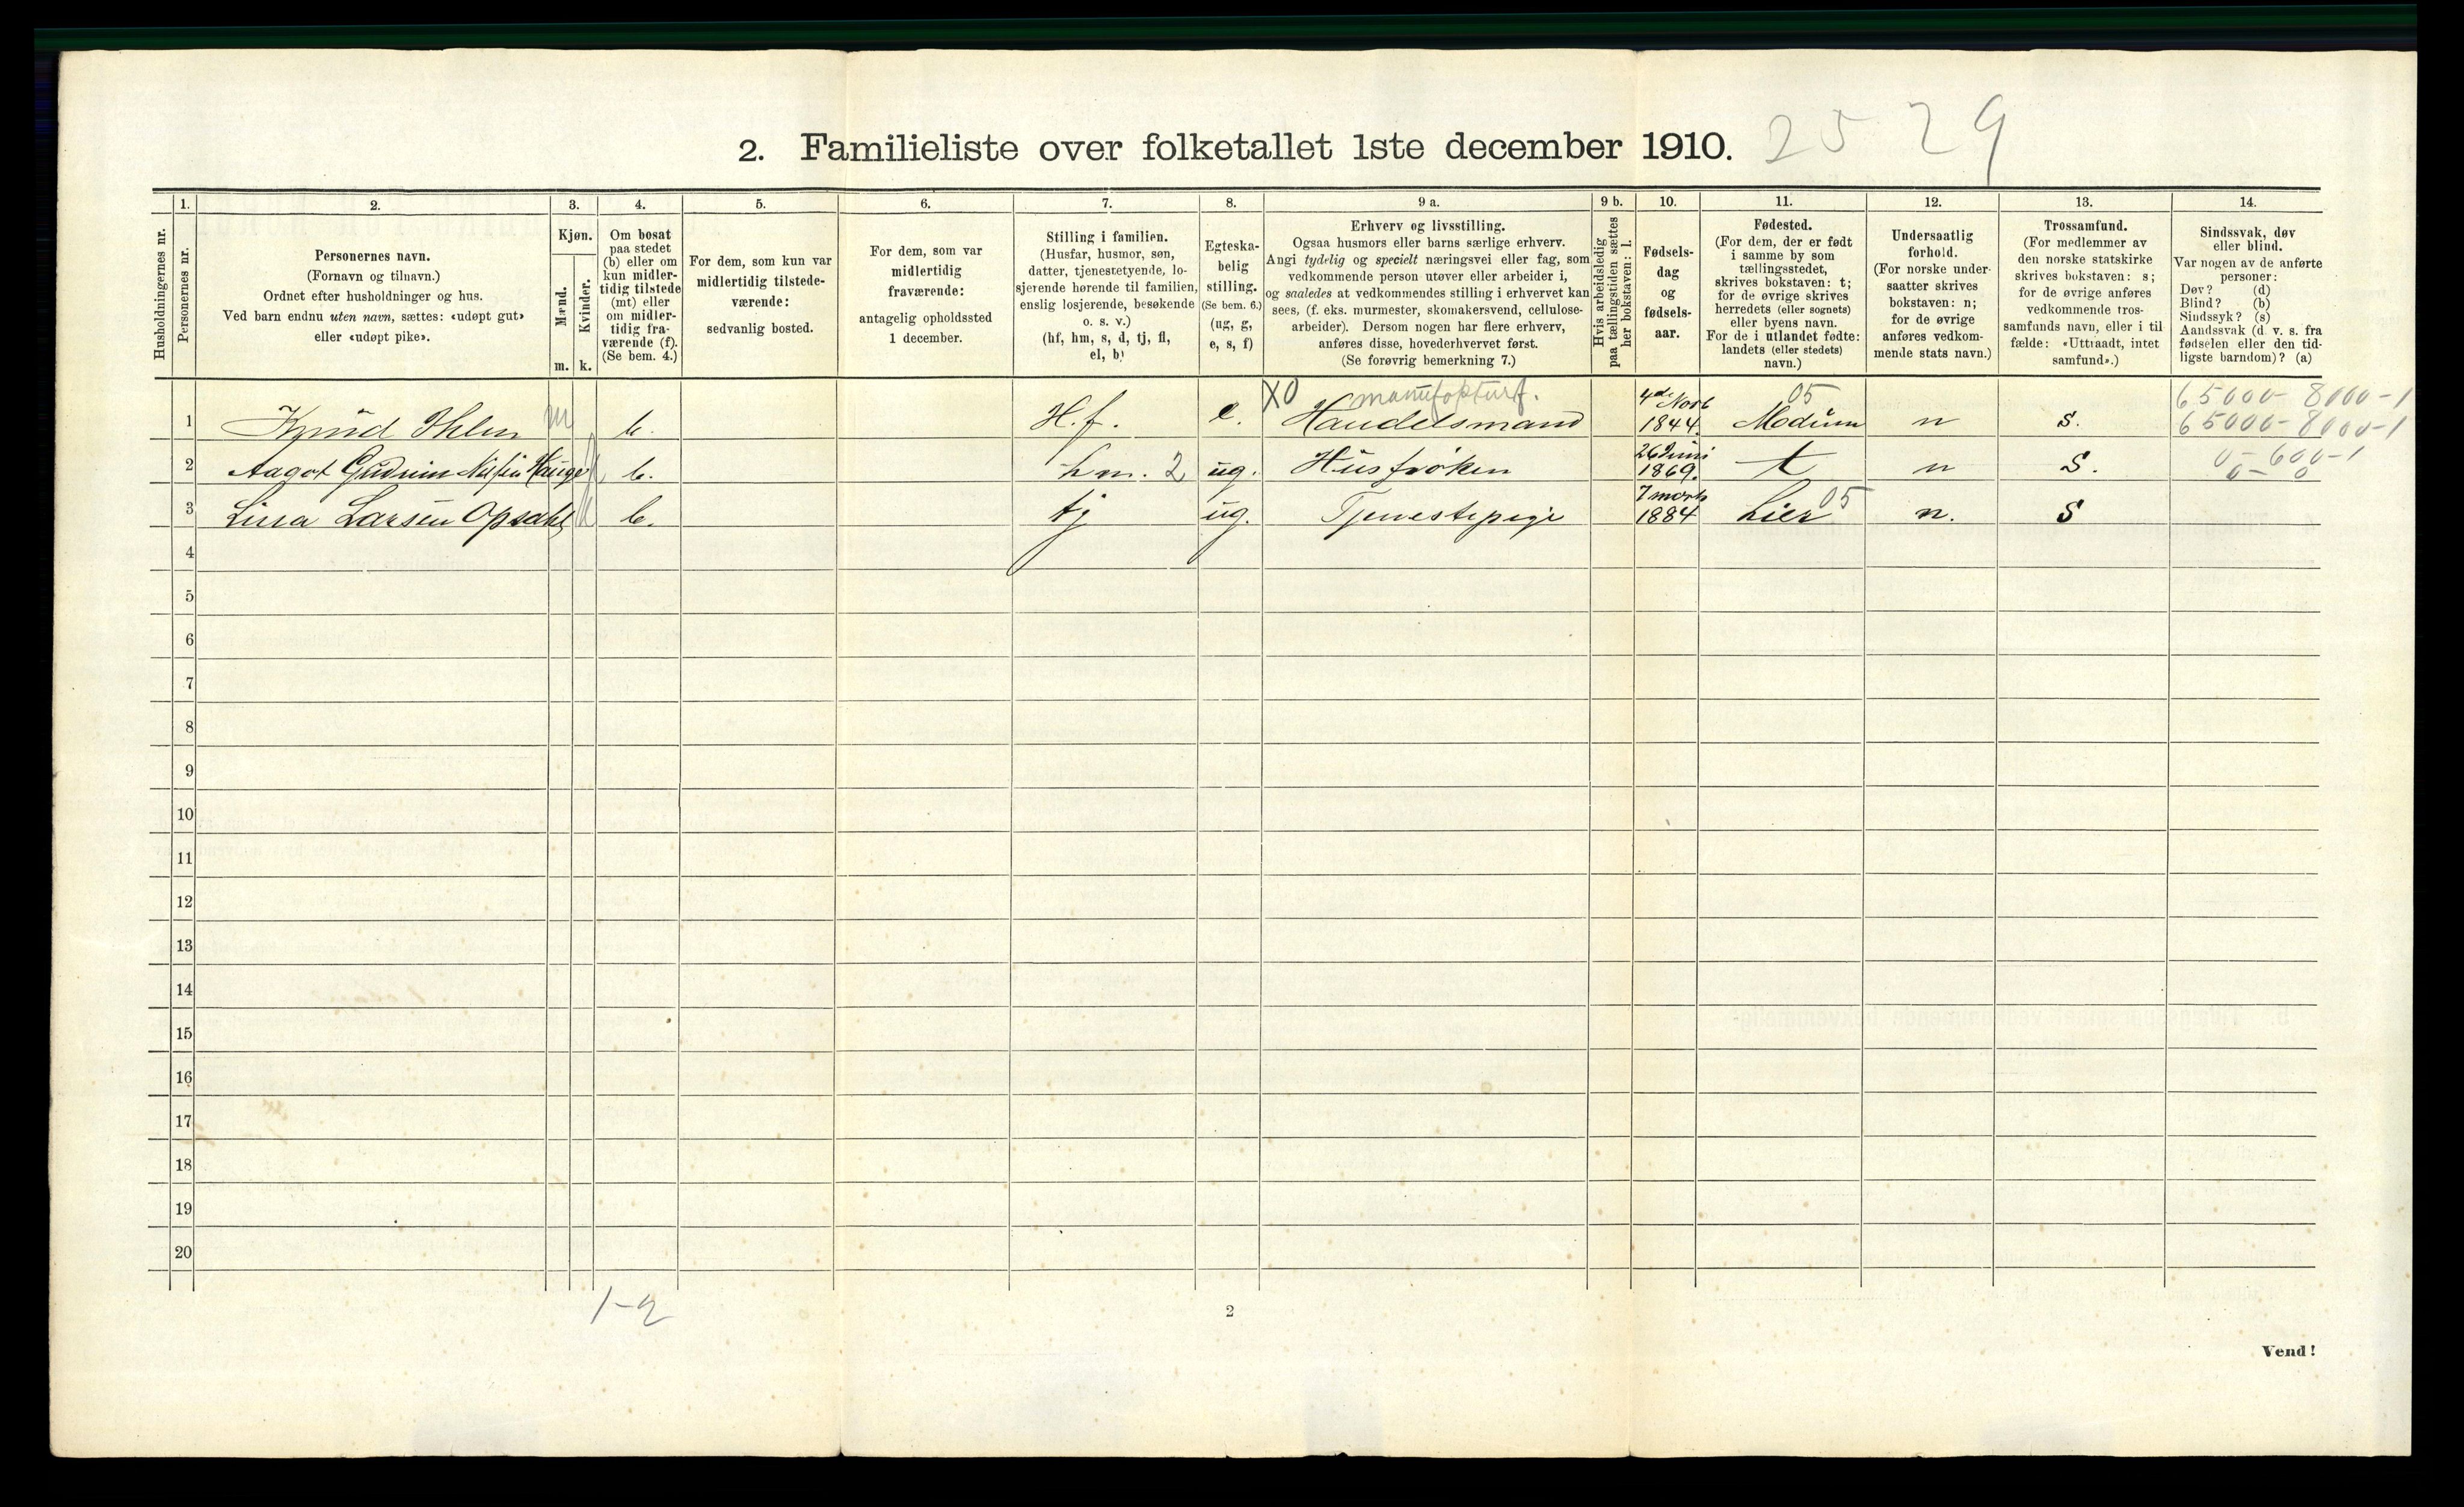 2. Familieliste over folketallet 1ste december 1910. 2529
1. 2. 3. 4. 5. 6. 7. 8. 9 a. 9 b. 10. 11. 12. 13. 14.
Husholdningernes nr.
Personernes nr.
Personernes navn.
(Fornavn og tilnavn.)
Ordnet efter husholdninger og hus.
Ved barn endnu uten navn, sættes: «udøpt gut»
eller «udøpt pike».
Kjøn.
Mænd.
Kvinder.
m. k.
Om bosat
paa stedet
(b) eller om
kun midler-
tidig tilstede
(mt) eller
om midler-
tidig fra-
værende (f).
(Se bem. 4.)
For dem, som kun var
midlertidig tilstede-
værende:
sedvanlig bosted.
For dem, som var
midlertidig
fraværende:
antagelig opholdssted
1 december.
Stilling i familien.
(Husfar, husmor, søn,
datter, tjenestetyende, lo-
sjerende hørende til familien,
enslig losjerende, besøkende
o. s. v.)
(hf, hm, s, d, tj, fl,
el, b)
Egteska-
belig
stilling.
(Se bem. 6.)
(ug, g,
e, s, f)
Erhverv og livsstilling.
Ogsaa husmors eller barns særlige erhverv.
Angi tydelig og specielt næringsvei eller fag, som
vedkommende person utøver eller arbeider i,
og saaledes at vedkommendes stilling i erhvervet kan
sees, (f. eks. murmester, skomakersvend, cellulose-
arbeider). Dersom nogen har flere erhverv,
anføres disse, hovederhvervet først.
(Se forøvrig bemerkning 7.)
Hvis arbeidsledig
paa tællingstiden sættes
her bokstaven: l.
Fødsels-
dag
og
fødsels-
aar.
Fødested.
(For dem, der er født
i samme by som
tællingsstedet,
skrives bokstaven: t;
for de øvrige skrives
herredets (eller sognets)
eller byens navn.
For de i utlandet fødte:
landets (eller stedets)
navn.)
Undersaatlig
forhold.
(For norske under-
saatter skrives
bokstaven: n;
for de øvrige
anføres vedkom-
mende stats navn.)
Trossamfund.
(For medlemmer av
den norske statskirke
skrives bokstaven: s;
for de øvrige anføres
vedkommende tros-
samfunds navn, eller i til-
fælde: «Uttraadt, intet
samfund».)
Sindssvak, døv
eller blind.
Var nogen av de anførte
personer:
Døv? (d)
Blind? (b)
Sindssyk? (s)
Aandssvak (d. v. s. fra
fødselen eller den tid-
ligste barndom)? (a)
X0 manufakturf. 4de Novb 05 65000-8000-1
1 Knud Ihlen m b. H.f. e. Handelsmand 1844. Modum n s. 65000-8000-1
26 Juni 0-600-1
2 Aagot Gudrun Hauge b. hm. 2 ug. Husfrøken 1869. t n s. 0-0
7 marts 05
3 Lina Larsen Opsahl b. tj ug. Tjenestepige 1884 Lier n. s
4
5
6
7
8
9
10
11
12
13
14
15
16
17
18
19
20
1-2
2
Vend!